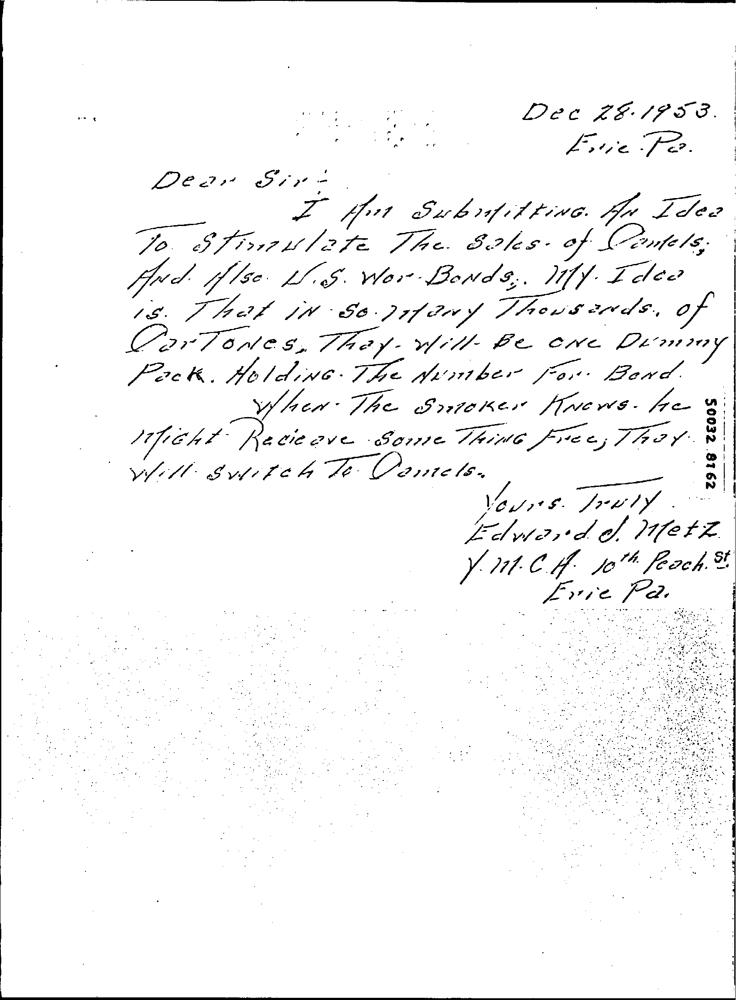 Dec 28.1953.
Erie. Pa.
Dear Sir:
I Am Submitting. An Idea
To Stimulate The. Sales. of Camels;
And. Also U.S. War-Bonds;. My. Idea
is. That in so.many Thousands. of
CarTones, They-Will-Be one Dummy
Pack. Holding. The Number For. Bond.
When. The Smoker Knows. he
might Recieave some Thing Free; They
Will switch To Camels.
Yours. Truly
Edward J. Metz
Y.M.C.A. 10th Peach. St.
Erie Pa.
50032 8162